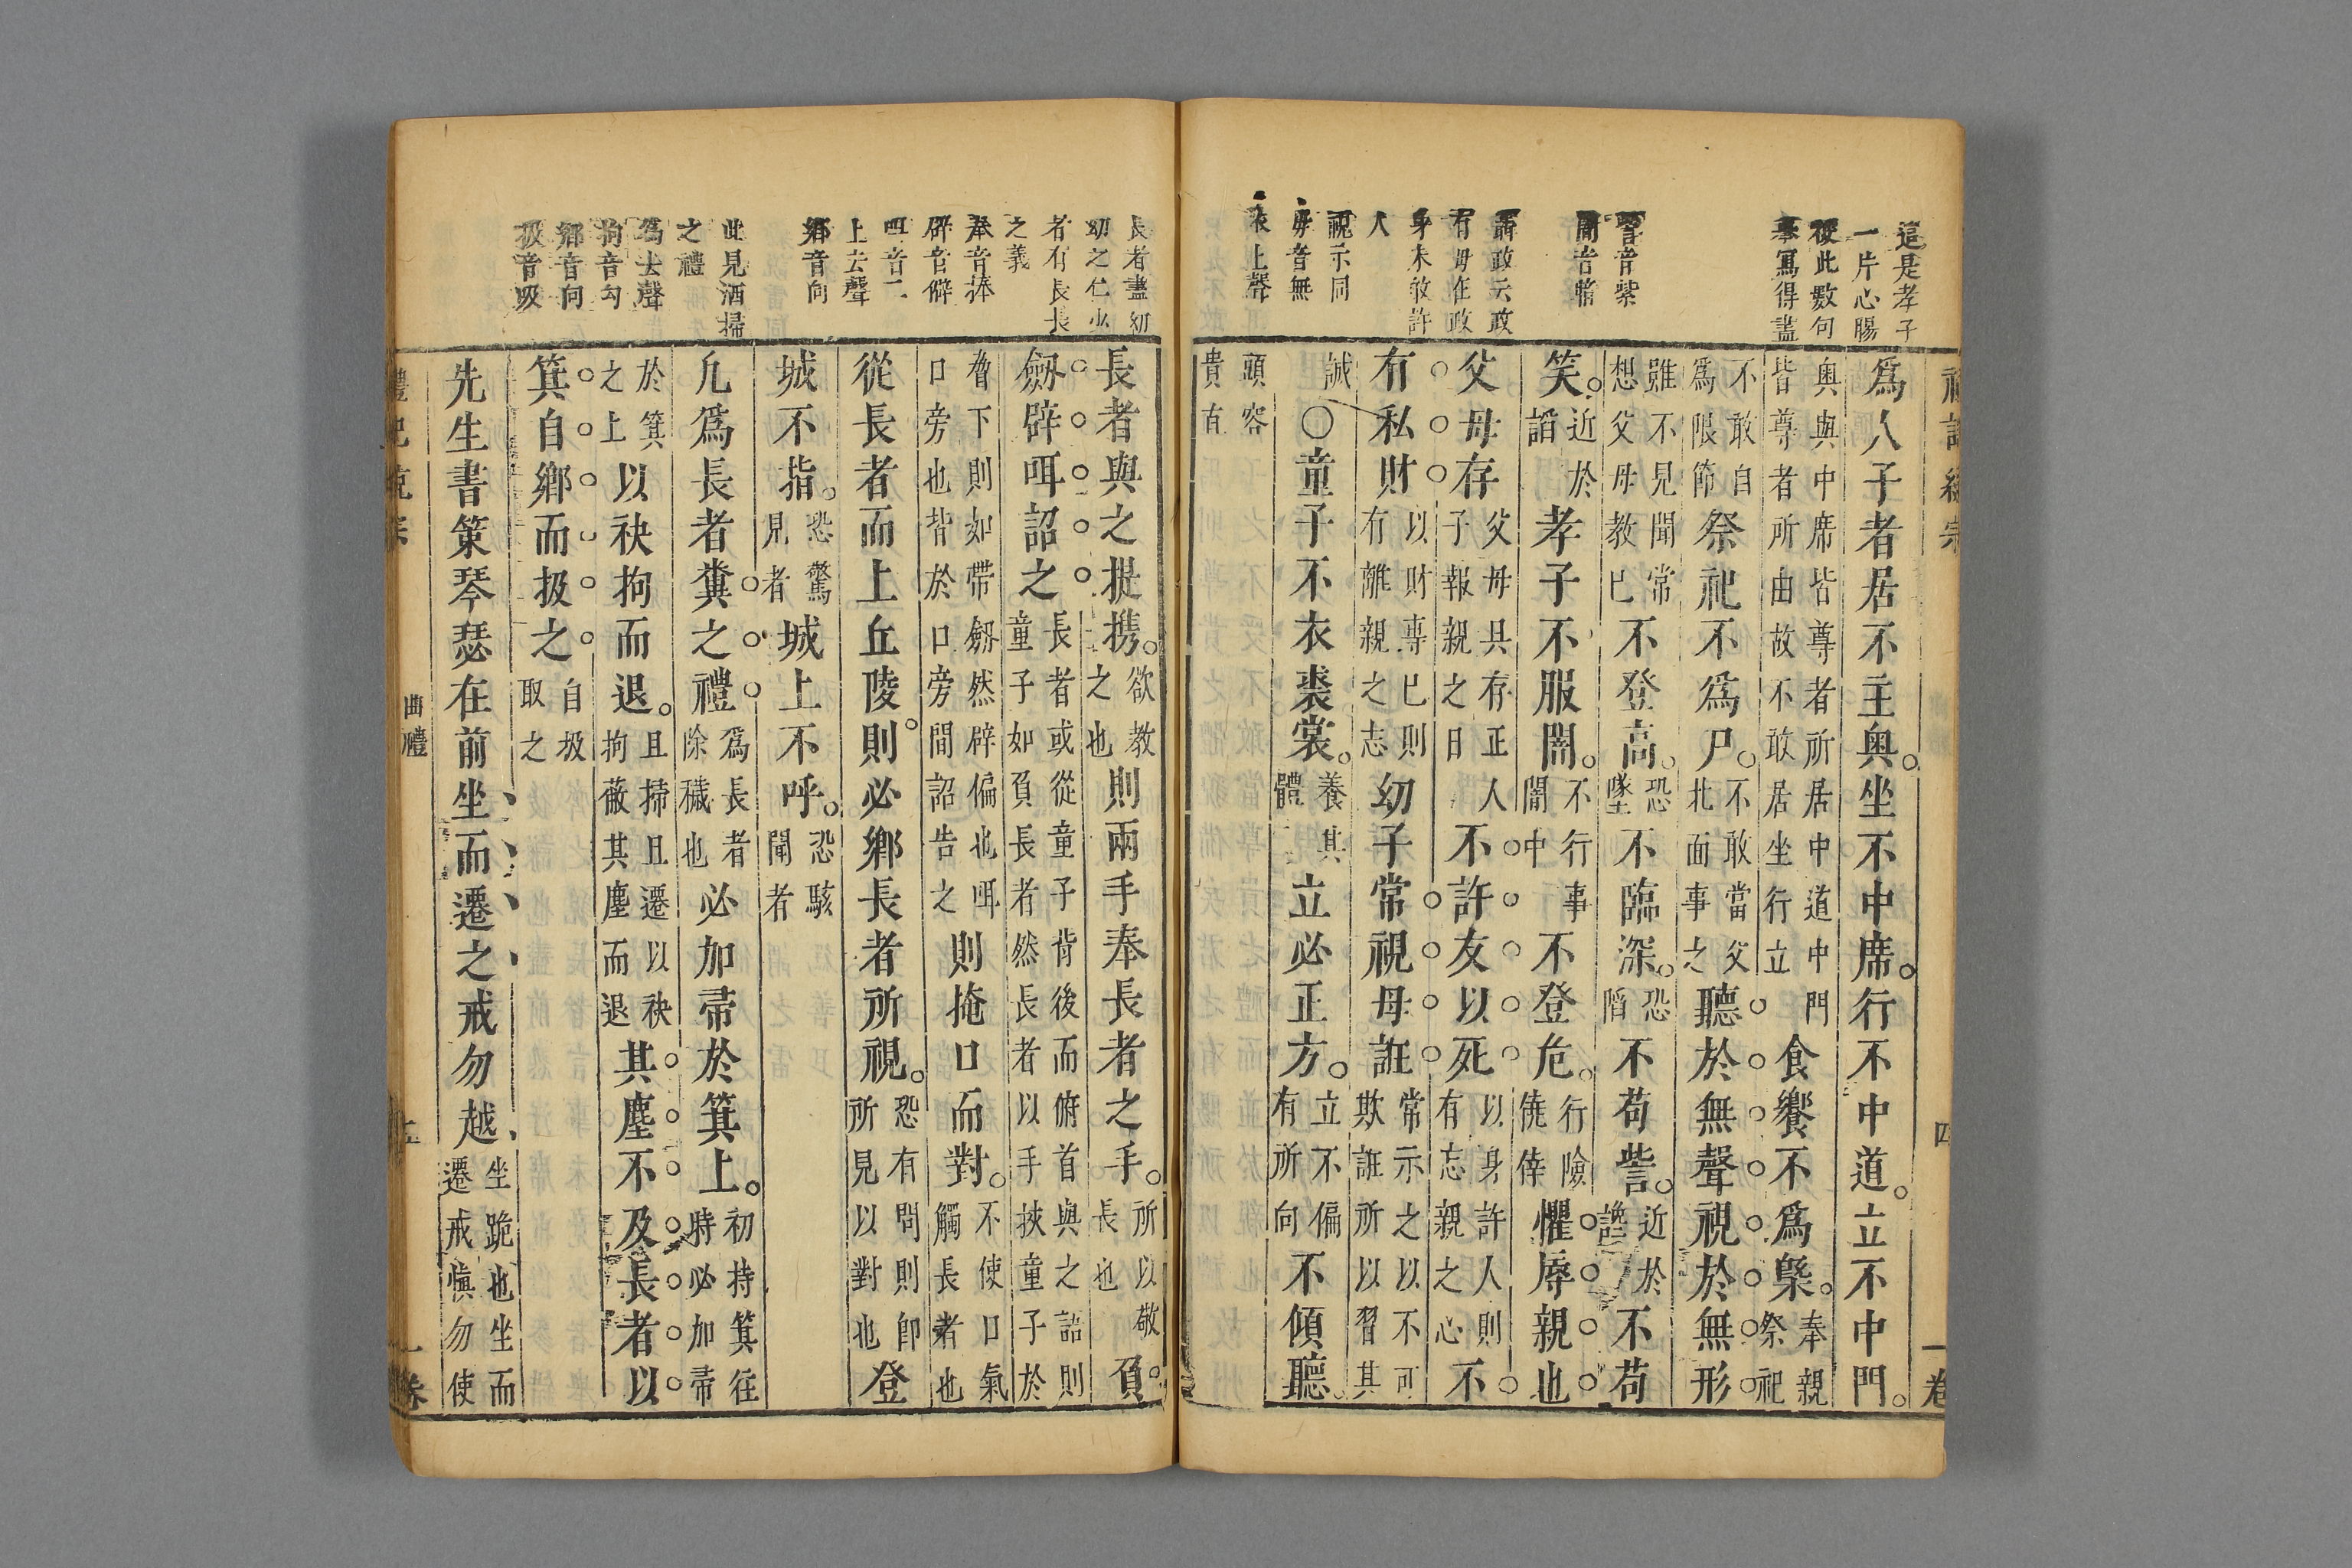 這是孝子
一片心腸
從此數句
摹寫得盡
訾音紫
闇音暗
謂政云政
有毋在政
身未敢許
人
視示同
毋音無
衣上聲
為人子者居不主奧。坐不中席。行不中道。立不中門。
奧與中席皆尊者所居中道中門
皆尊者所由故不敢居坐行立
食饗不為槩。
奉親
祭祀
不敢自
為限節
祭祀不為尸。
不敢當父
北面事之
聽於無聲視於無形
雖不見聞常
想父母教已
不登高。
恐
墜
不臨深。
恐
陷
不苟訾。
近於
讒
不苟
笑。
近於
諂
孝子不服闇。
不行事
闇中
不登危。
行險
僥倖
懼辱親也
父母存
父母具存正人
子報親之日
不許友以死
以身許人則
有忘親之心
不
有私財
以財專已則
有離親之志
幼子常視母誑
常示之以不可
欺誑所以習其
誠
○童子不衣裘裳。
養其
體
立必正方。
立不偏
有所向
不傾聽。
頭容
貴直
四
一卷
長者盡幼
幼之仁少
者有長長
之義
奉音捧
辟音僻
咡音二
上去聲
鄉音向
此見洒掃
之禮
為去聲
拘音勾
鄉音向
扱音吸
長者與之提携。
欲教
之也
則兩手奉長者之手。
所以敬
長也
負。
劔辟咡詔之
長者或從童子背後而俯首與之語則
童子如負長者然長者以手挾童子於
脅下則如帶劔然辟偏也咡
口旁也皆於口旁間詔告之
則掩口而對。
不使口氣
觸長者也
從長者而上丘陵。則必鄉長者所視。
恐有問則即
所見以對也
登
城不指。
恐驚
見者
城上不呼。
恐駭
聞者
凢為長者糞之禮
為長者
除穢也
必加帚於箕上。
初持箕往
時必加帚
於箕
之上
以袂拘而退。
且掃且遷以袂
拘蔽其塵而退
其塵不及長者以
箕自鄉而扱之
自扱
取之
先生書策琴瑟在前坐而遷之戒勿越
坐跪也坐而
遷戒愼勿使
曲禮
一卷